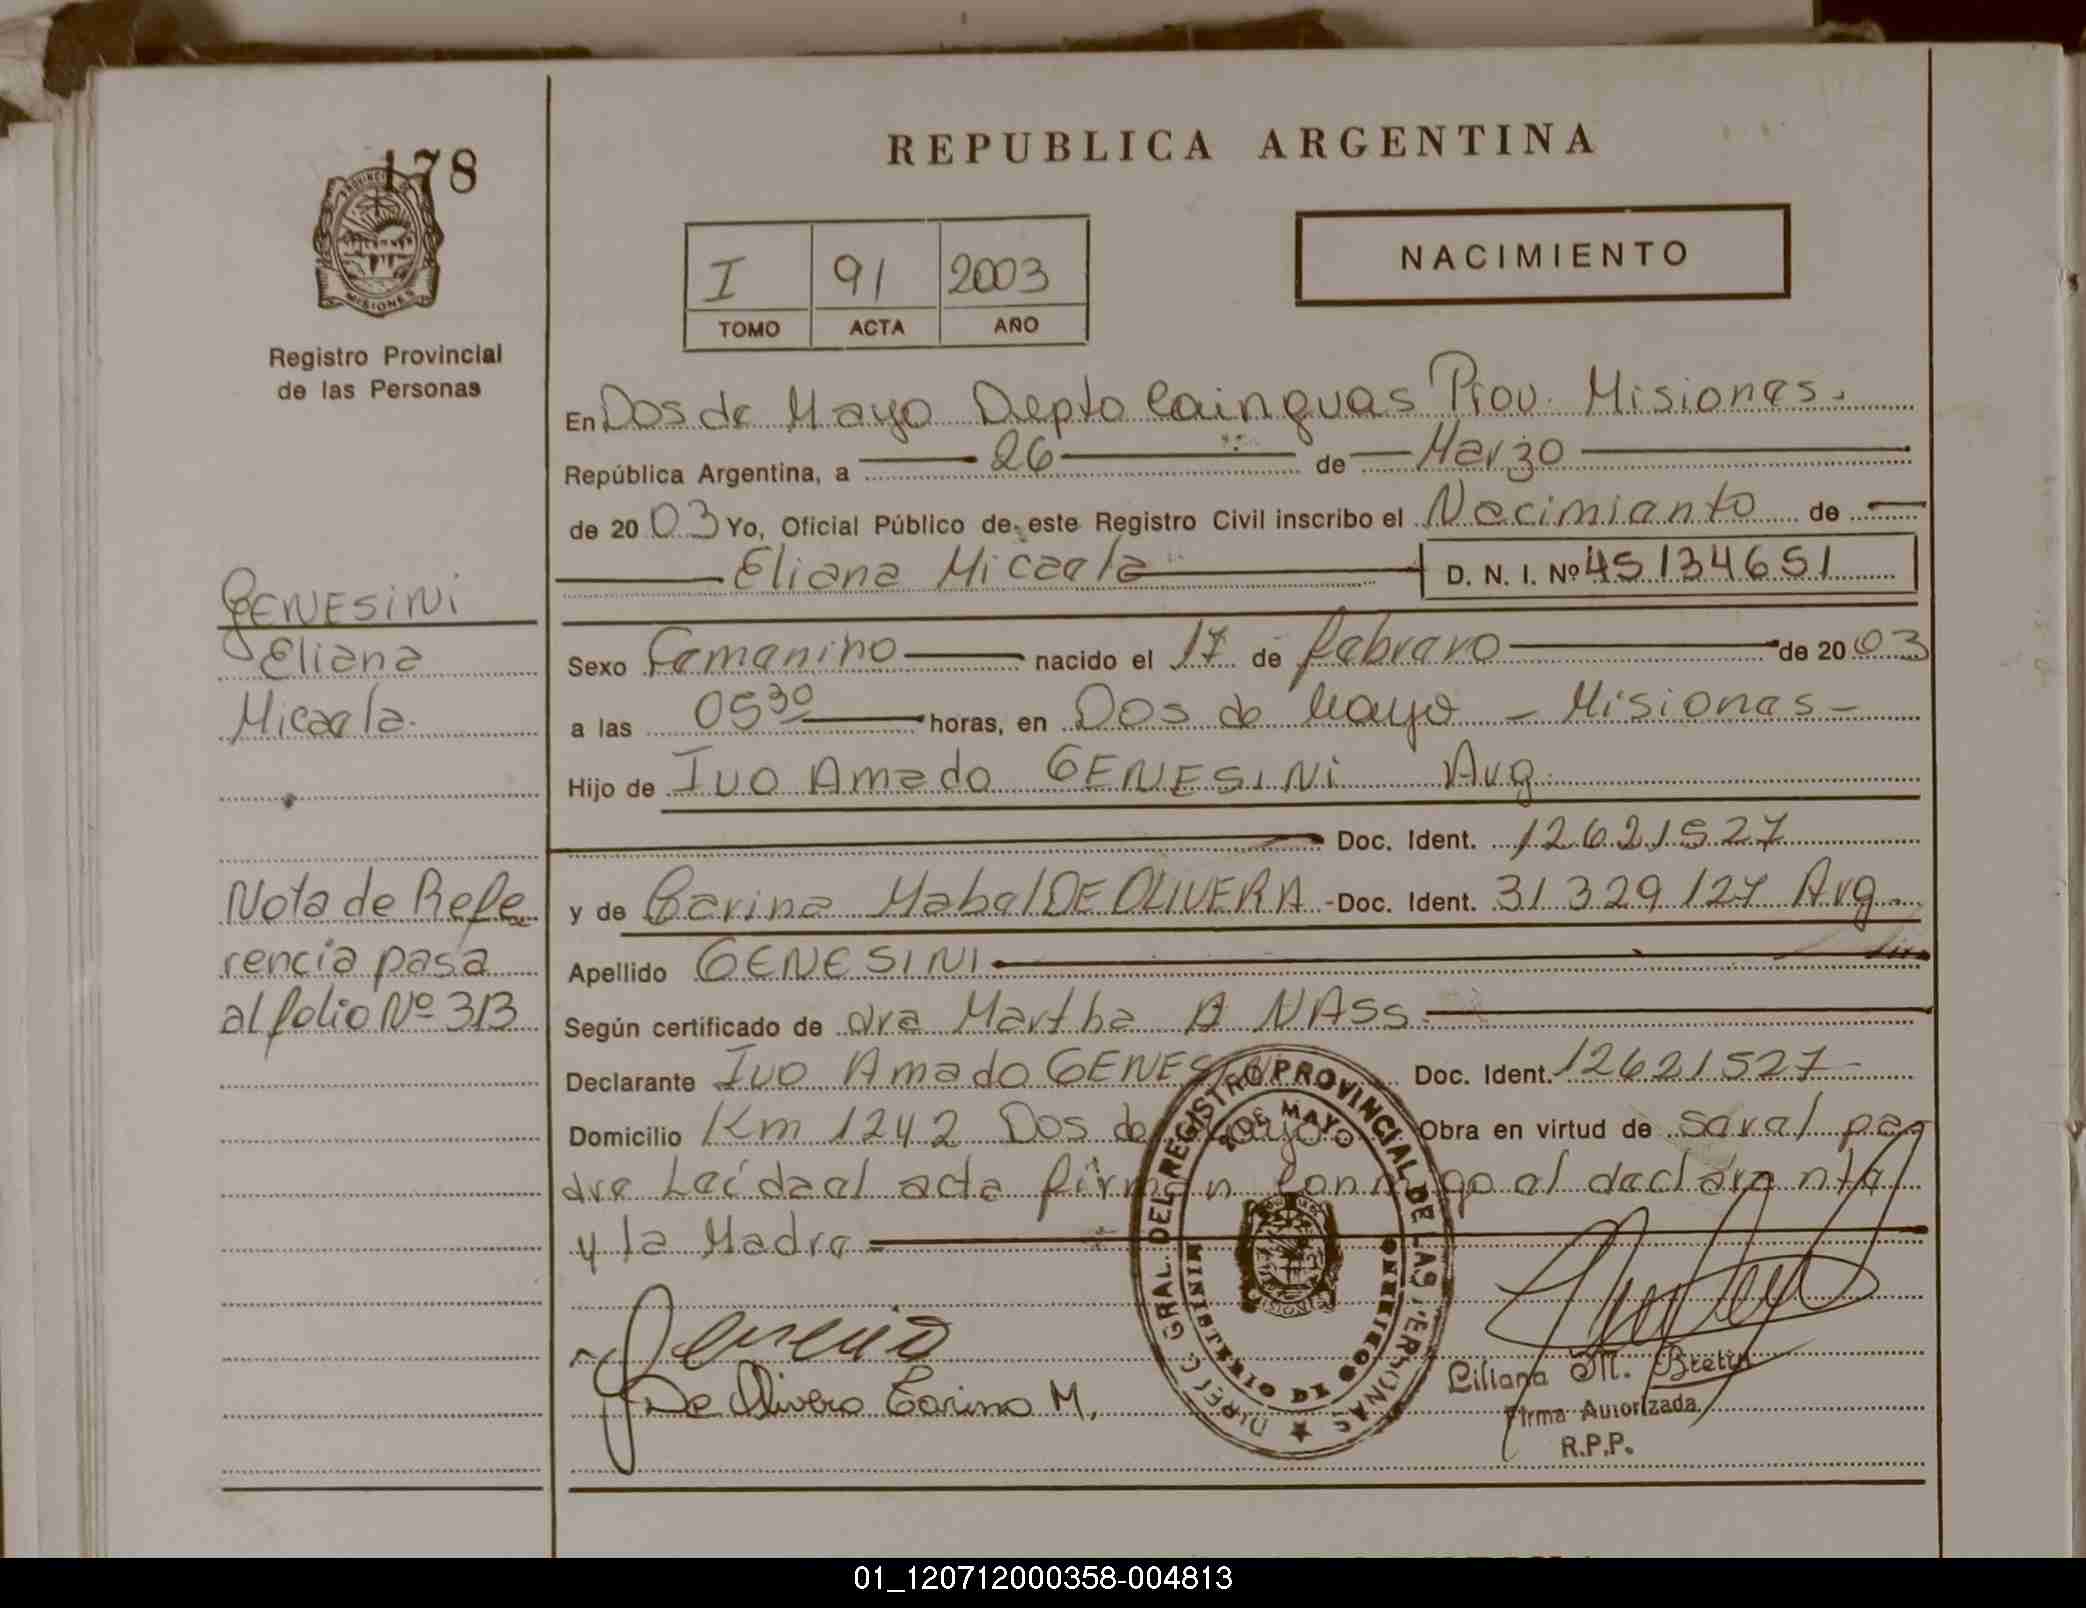 178
PROVINCIA DE
MISIONES
Registro Provincial
de las Personas
REPUBLICA ARGENTINA
I 91 2003
TOMO ACTA AÑO
NACIMIENTO
En Dos de Mayo Depto Cainguas Prov. Misiones.
República Argentina, a 26 de Marzo
de 2003 Yo, Oficial Público de este Registro Civil inscribo el Nacimiento de
Eliana Micaela D. N. I. Nº 45134651
Sexo Femenino nacido el 17 de febrero de 2003
a las 05 30 horas, en Dos de Mayo - Misiones -
Hijo de Ivo Amado GENESINI Arg.
Doc. Ident. 12621527
y de Carina Mabel DE OLIVERA - Doc. Ident. 31329127 Arg.
Apellido GENESINI
Según certificado de dra Martha A NASS
Declarante Ivo Amado GENESINI Doc. Ident. 12621527
Domicilio Km 1242 Dos de Mayo Obra en virtud de ser el pa
dre Leída el acta firman conmigo el declarante
y la Madre
GENESINI
Eliana
Micaela.
Nota de Refe
rencia pasa
al folio Nº 313
De Olivera Carina M.
DIREC. GRAL. DEL REGISTRO PROVINCIAL DE LAS PERSONAS
2 DE MAYO
MINISTERIO DE GOBIERNO
Liliana M. Bretin
Firma Autorizada
R.P.P.
01_120712000358-004813